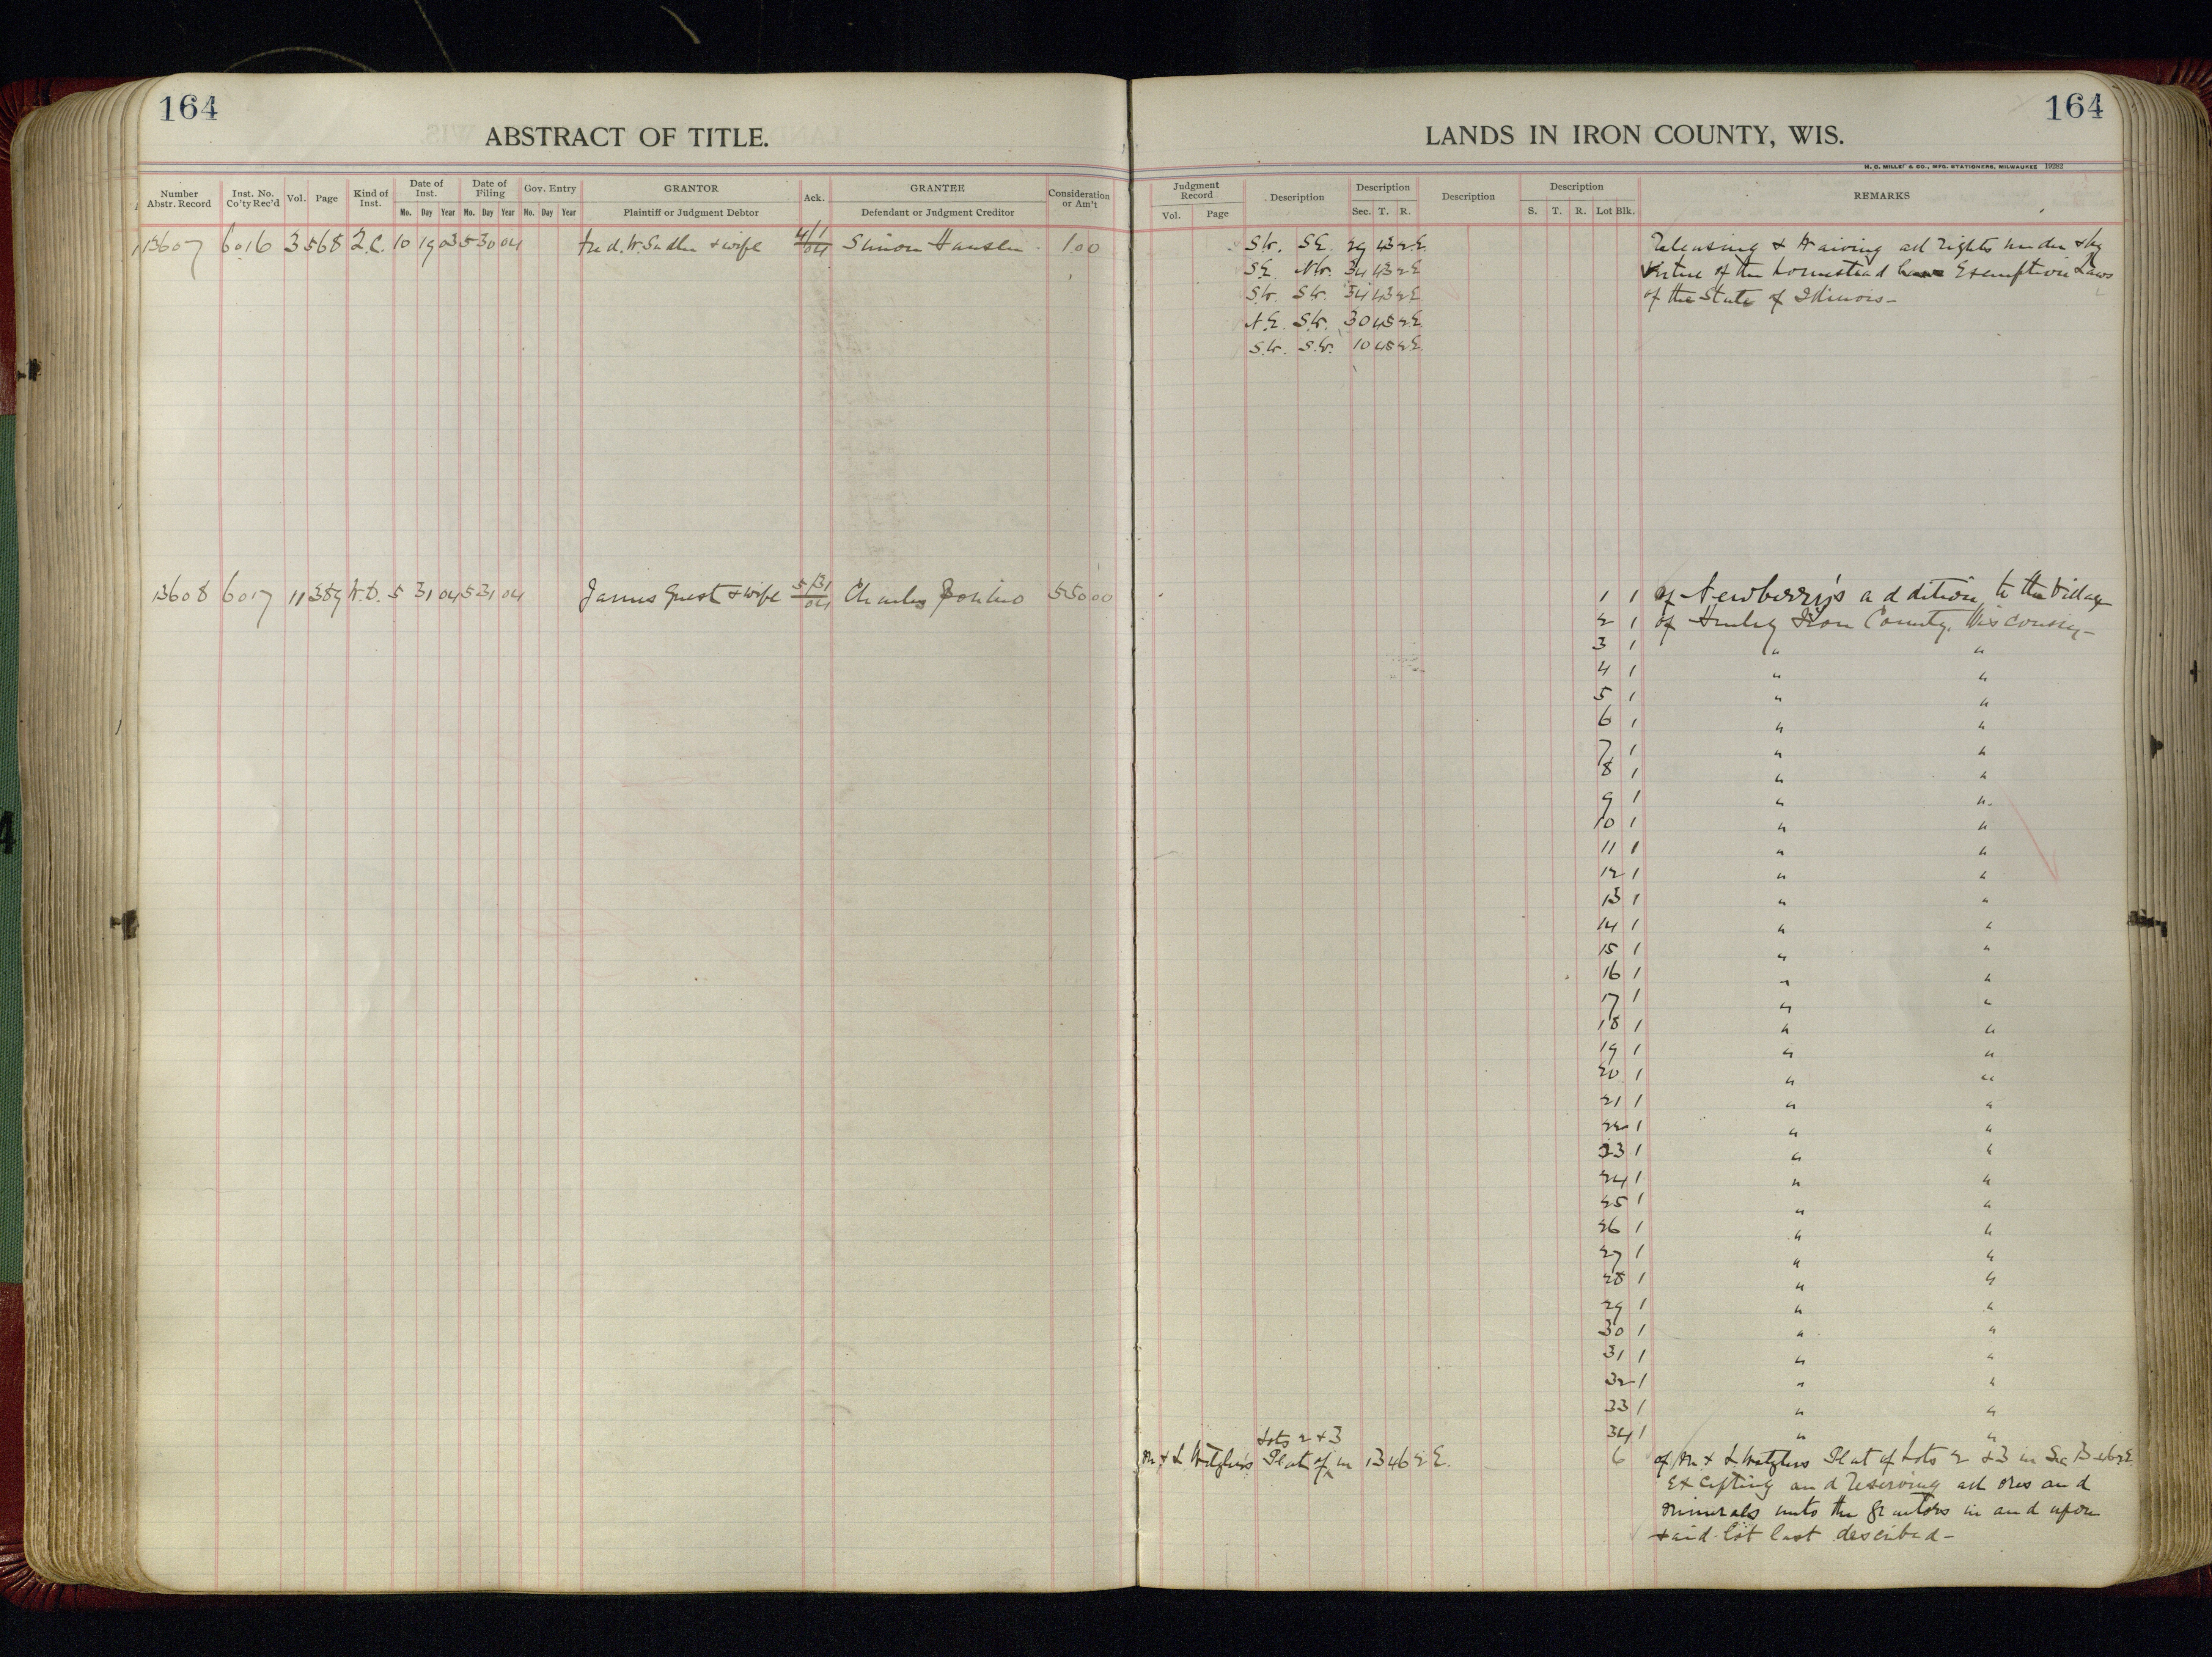 164
ABSTRACT OF TITLE.
Number Abstr. Record
Inst. No. Co'ty Rec'd
Vol.
Page
Kind of Inst.
Date of Inst.
Date of Filing
Gov. Entry
GRANTOR
Ack.
GRANTEE
Consideration or Am't
Mo. Day Year Mo. Day Year Mo. Day Year
Plaintiff or Judgment Debtor
Defendant or Judgment Creditor
13607 6016 3 568 Q.C. 10 19 03 5 30 04 Fred. W. & wife 4/1/04 Simon Hansen 1.00
13608 6017 11 389 W.D. 5 31 04 5 31 04 James Guest & wife 5/31/04 Charles 550 00
164
LANDS IN IRON COUNTY, WIS.
H. C. MILLER & CO., MFG. STATIONERS, MILWAUKEE
Judgment Record
Description
Description
Description
Description
REMARKS
Vol. Page
Sec. T. R.
S. T. R. Lot Blk.
S.W. S.E. 29 43 2 E. Releasing & Waiving all rights under & by
S.E. N.W. 34 43 2 E virtue of the homestead Exemption Laws
S.W. S.W. 34 43 2 E of the State of Illinois-
N.E. S.W. 30 45 2 E.
S.W. S.W. 10 45 2 E.
1 1 of Newberry's addition to the Village
2 1 of Hurley Iron County, Wisconsin-
3 1 " "
4 1 " "
5 1 " "
6 1 " "
7 1 " "
8 1 " "
9 1 " "
10 1 " "
11 1 " "
12 1 " "
13 1 " "
14 1 " "
15 1 " "
16 1 " "
17 1 " "
18 1 " "
19 1 " "
20 1 " "
21 1 " "
22 1 " "
23 1 " "
24 1 " "
25 1 " "
26 1 " "
27 1 " "
28 1 " "
29 1 " "
30 1 " "
31 1 " "
32 1 " "
33 1 " "
34 1 " "
Lots 2 & 3
M. & L. Plat of in 13 46 2 E. 6 of M. & L. Plat of Lots 2 & 3 in Sec 13 46 2 E
Excepting and Reserving all ores and
minerals unto the grantors in and upon
said lot last described-